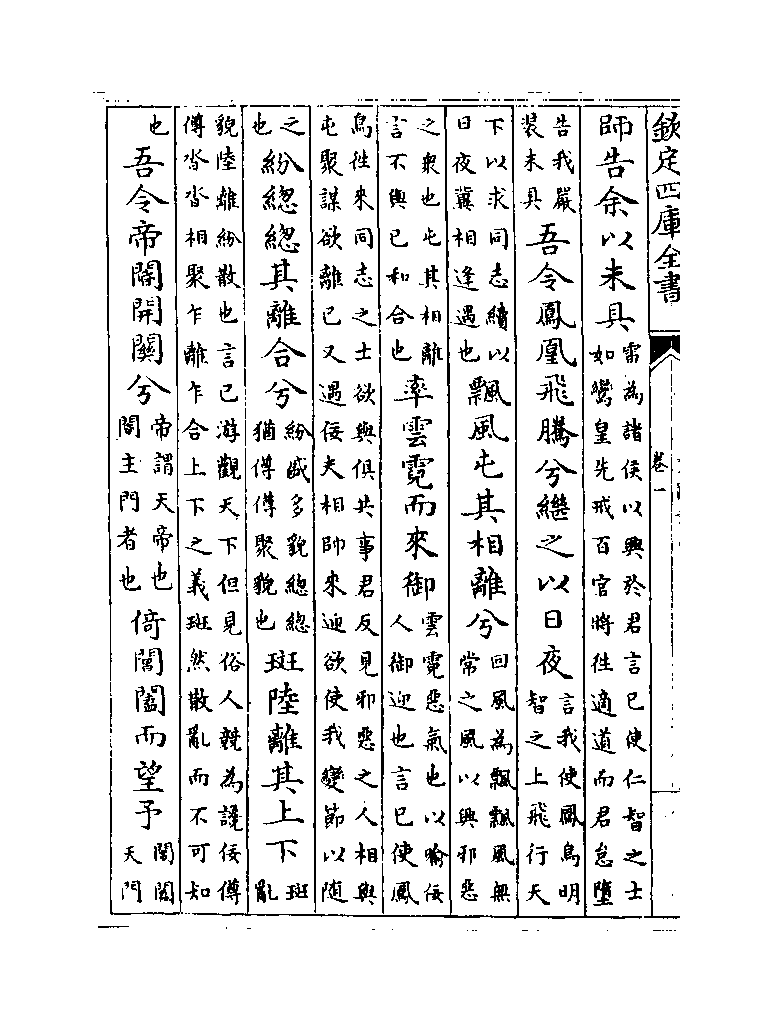 欽定四庫全書
卷一
師告余以未具雷為諸侯以興於君言已使仁智之士如鸞皇先戒百官將往適道而君怠墮
告我嚴裝未具吾令鳳凰飛騰兮繼之以日夜言我使鳳鳥明智之上飛行天
下以求同志續以日夜冀相逢遇也飄風屯其相離兮回風為飄飄風無常之風以興邪惡
之衆也屯其相離言不與已和合也率雲霓而來御雲霓惡氣也以喻佞人御迎也言已使鳳
鳥往來同志之士欲與俱共事君反見邪惡之人相與屯聚謀欲離已又遇佞夫相帥來迎欲使我變節以随
之也紛緫緫其離合兮紛盛多貌緫緫猶僔僔聚貌也斑陸離其上下斑亂
貌陸離紛散也言已游觀天下但見俗人競為讒佞僔僔沓沓相聚乍離乍合上下之義斑然散亂而不可知
也吾令帝閽開關兮帝謂天帝也閽主門者也倚閶闔而望予閶闔天門